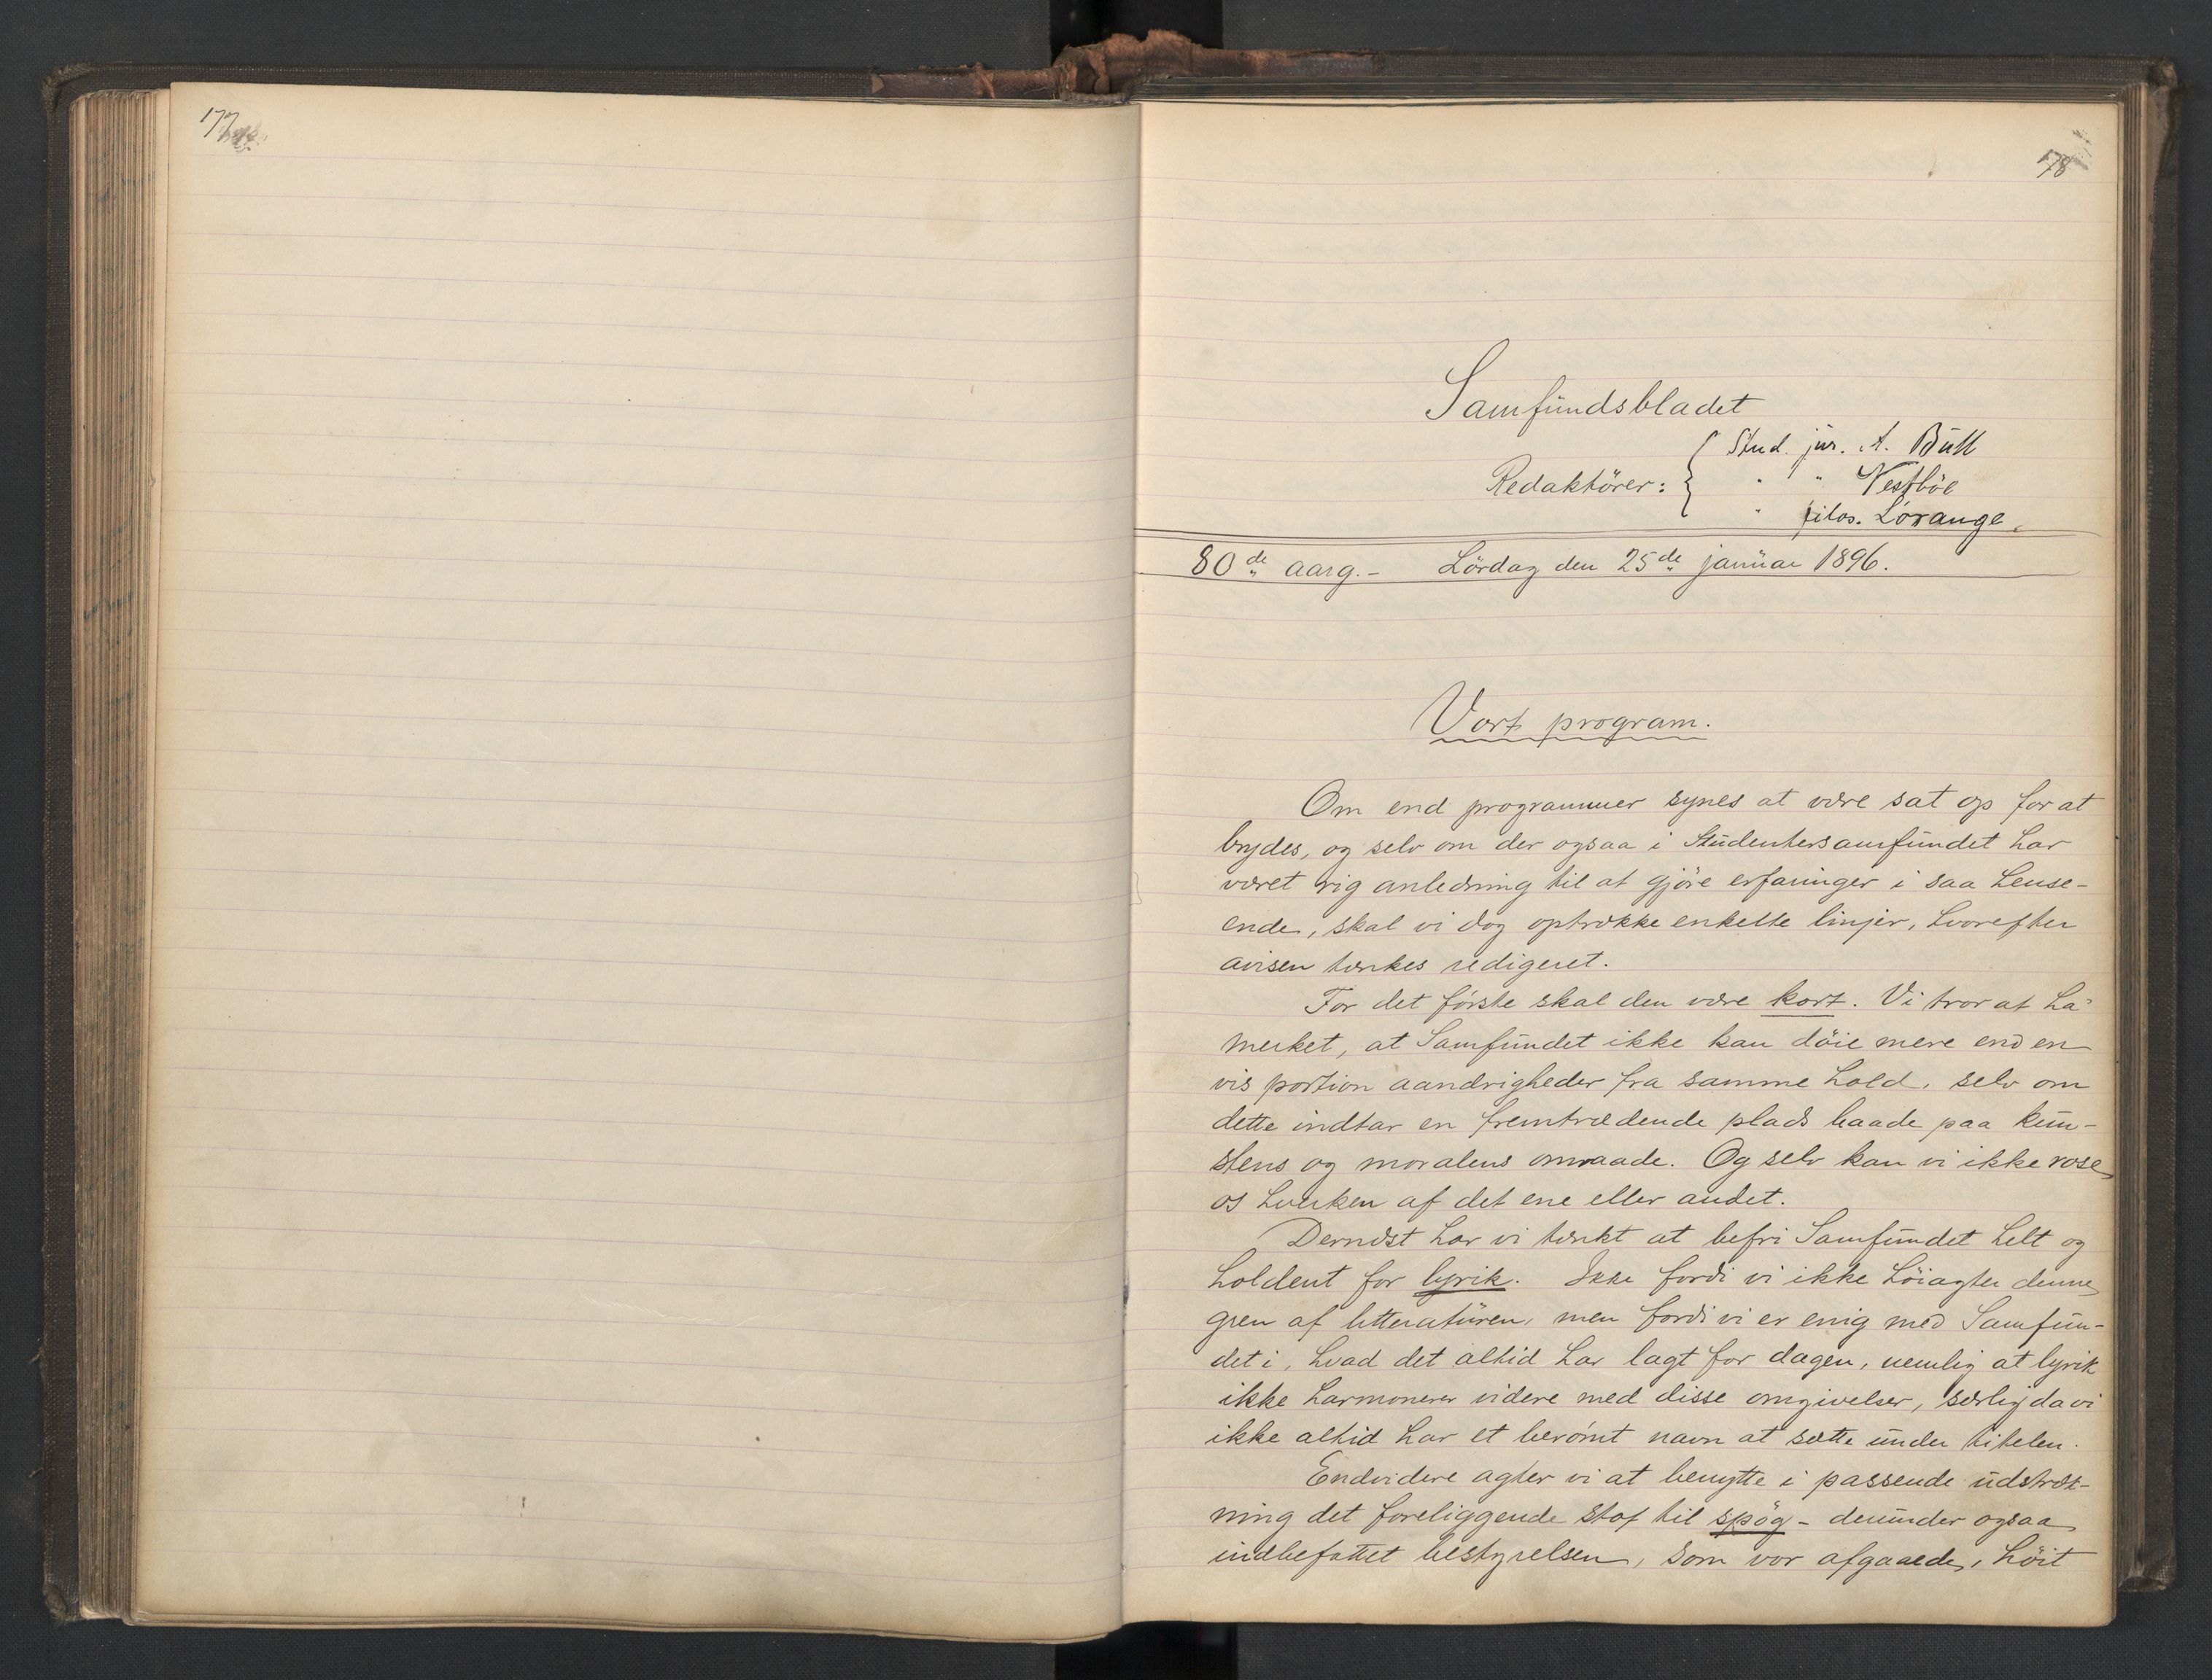 177
178
Samfundsbladet
Redaktörer:
Stud. jur. A. Bull
" " Vestböe
" filos. Lorange.
80de aarg. – Lördag den 25de januar 1896.
Vort program.
Om end programmer synes at være sat op for at
brydes, og selv om der ogsaa i Studentersamfundet har
været rig anledning til at gjöre erfaringer i saa hense-
ende, skal vi dog optrække enkelte linjer, hvorefter
avisen tænkes redigeret.
For det förste skal den være kort. Vi tror at ha
merket, at Samfundet ikke kan döie mere end en
vis portion aandrigheder fra samme hold, selv om
dette indtar en fremtrædende plads baade paa kun-
stens og moralens omraade. Og selv kan vi ikke rose
os hverken af det ene eller andet.
Dernæst har vi tænkt at befri Samfundet helt og
holdent for lyrik. Ikke fordi vi ikke höiagter denne
gren af litteraturen, men fordi vi er enig med Samfun-
det i, hvad det altid har lagt for dagen, nemlig at lyrik
ikke harmonerer videre med disse omgivelser, særlig da vi
ikke altid har et berömt navn at sætte under titelen.
Endvidere agter vi at benytte i passende udstræk-
ning det foreliggende stof til spög – derunder ogsaa
indbefattet bestyrelsen, som vor afgaaede, höit